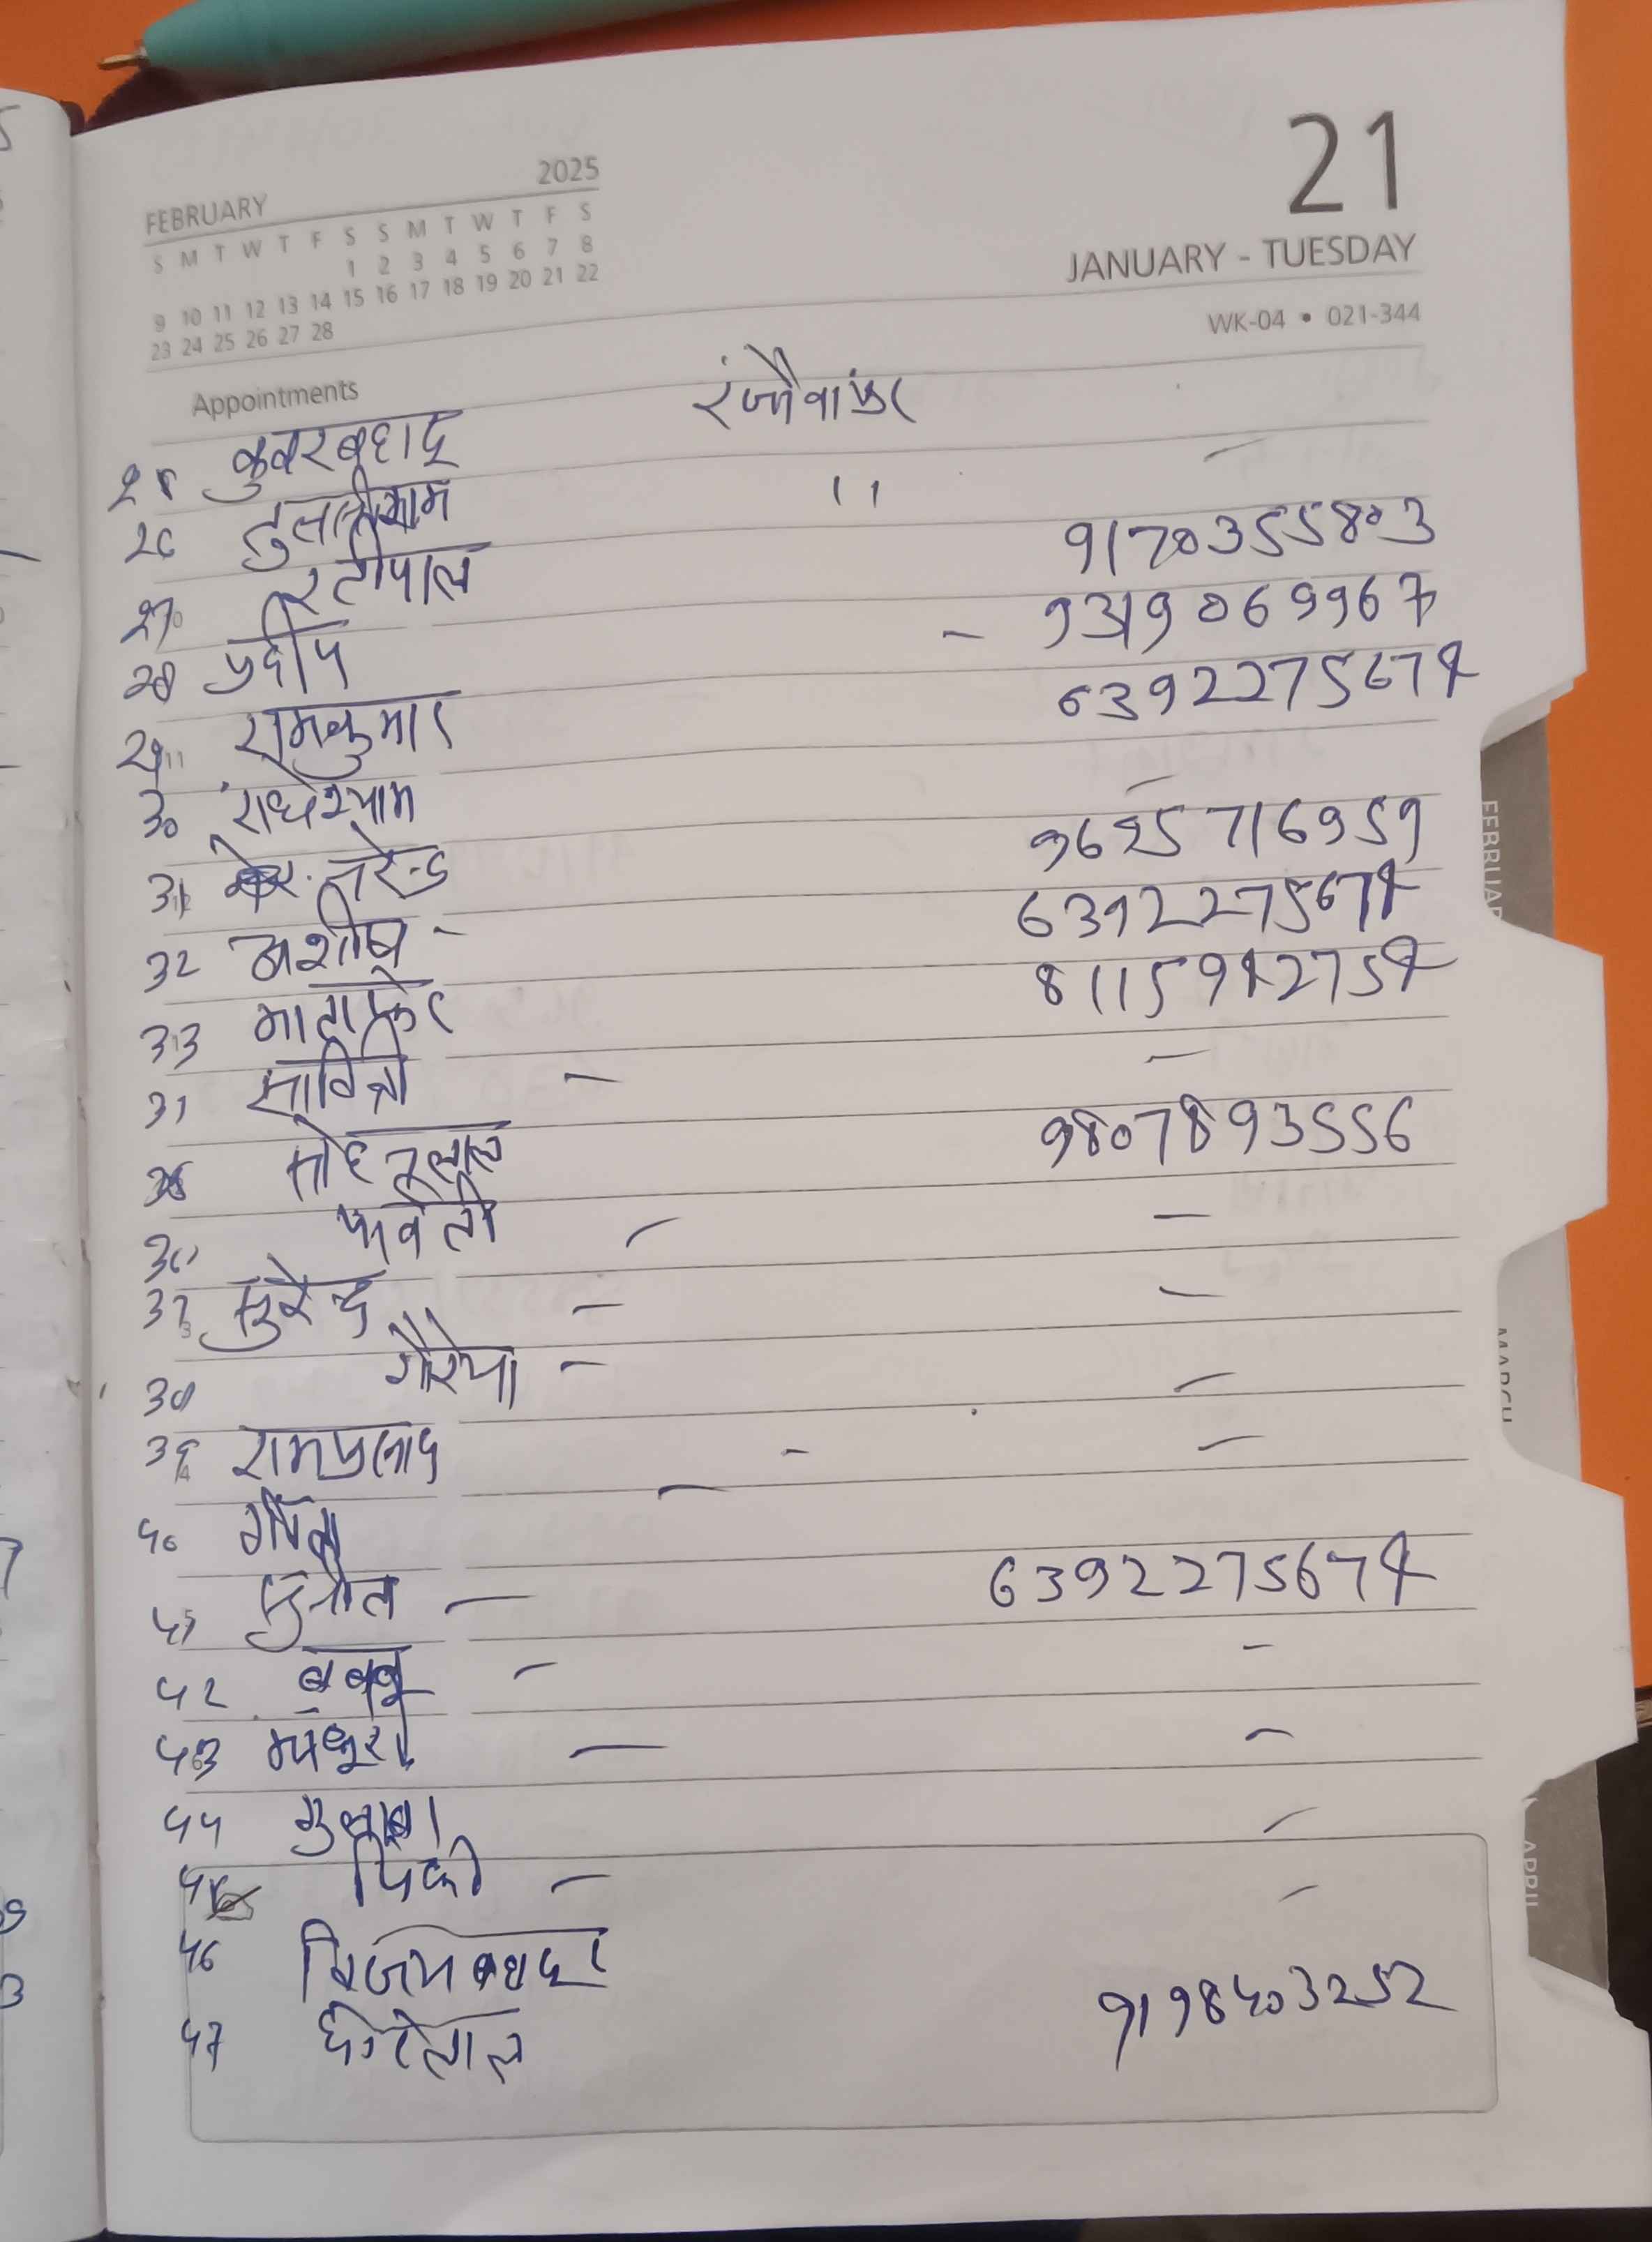 2025
FEBRUARY
S M T W T F S S M T W T F S
1 2 3 4 5 6 7 8
9 10 11 12 13 14 15 16 17 18 19 20 21 22
23 24 25 26 27 28
21
JANUARY - TUESDAY
WK-04 • 021-344
Appointments
कुवरबहादू
26 11
27 रतीपाल 9170355803
28 प्रदीप - 9319069967
29 रामकुमार 6392275674
30 राधेश्याम -
31 नरेन्द्र 9625716959
32 अशीष - 6392275674
33 8115942754
सावित्री - -
मोहनलाल 9807893556
पार्वती - -
37 सुरेन्द्र - -
गौरेया - -
39 रामप्रसाद - -
40
41 सुनील - 6392275674
42 बब्बू - -
43 - -
44 गुलाबा -
पिंकी - -
46 विजयबहादुर
47 छोटेलाल 9198403252
FEBRUAR
MARCH
APRIL